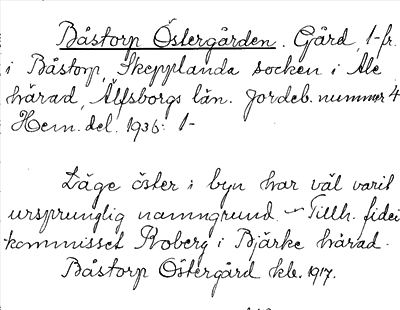 Båstorp Östergården. Gård, 1-fr.
i Båstorp, Skepplanda socken i Ale
härad, Älfsborgs län. Jordeb. nummer 4
Hem. del. 1936: 1-
Läge öster i byn har väl varit
ursprunglig namngrund. – Tillh. fidei
kommisset Koberg i Bjärke härad.
Båstorp Östergård kb. 1917.